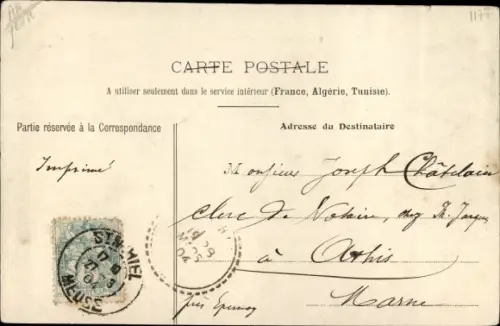 1177
CARTE POSTALE
A utiliser seulement dans le service intérieur (France, Algérie, Tunisie).
Partie réservée à la Correspondance
Adresse du Destinataire
Imprimé
Monsieur Joseph Châtelain
clerc de Notaire, chez M.
à Athis
Marne
près Epernay
ST MIHIEL
MEUSE
04